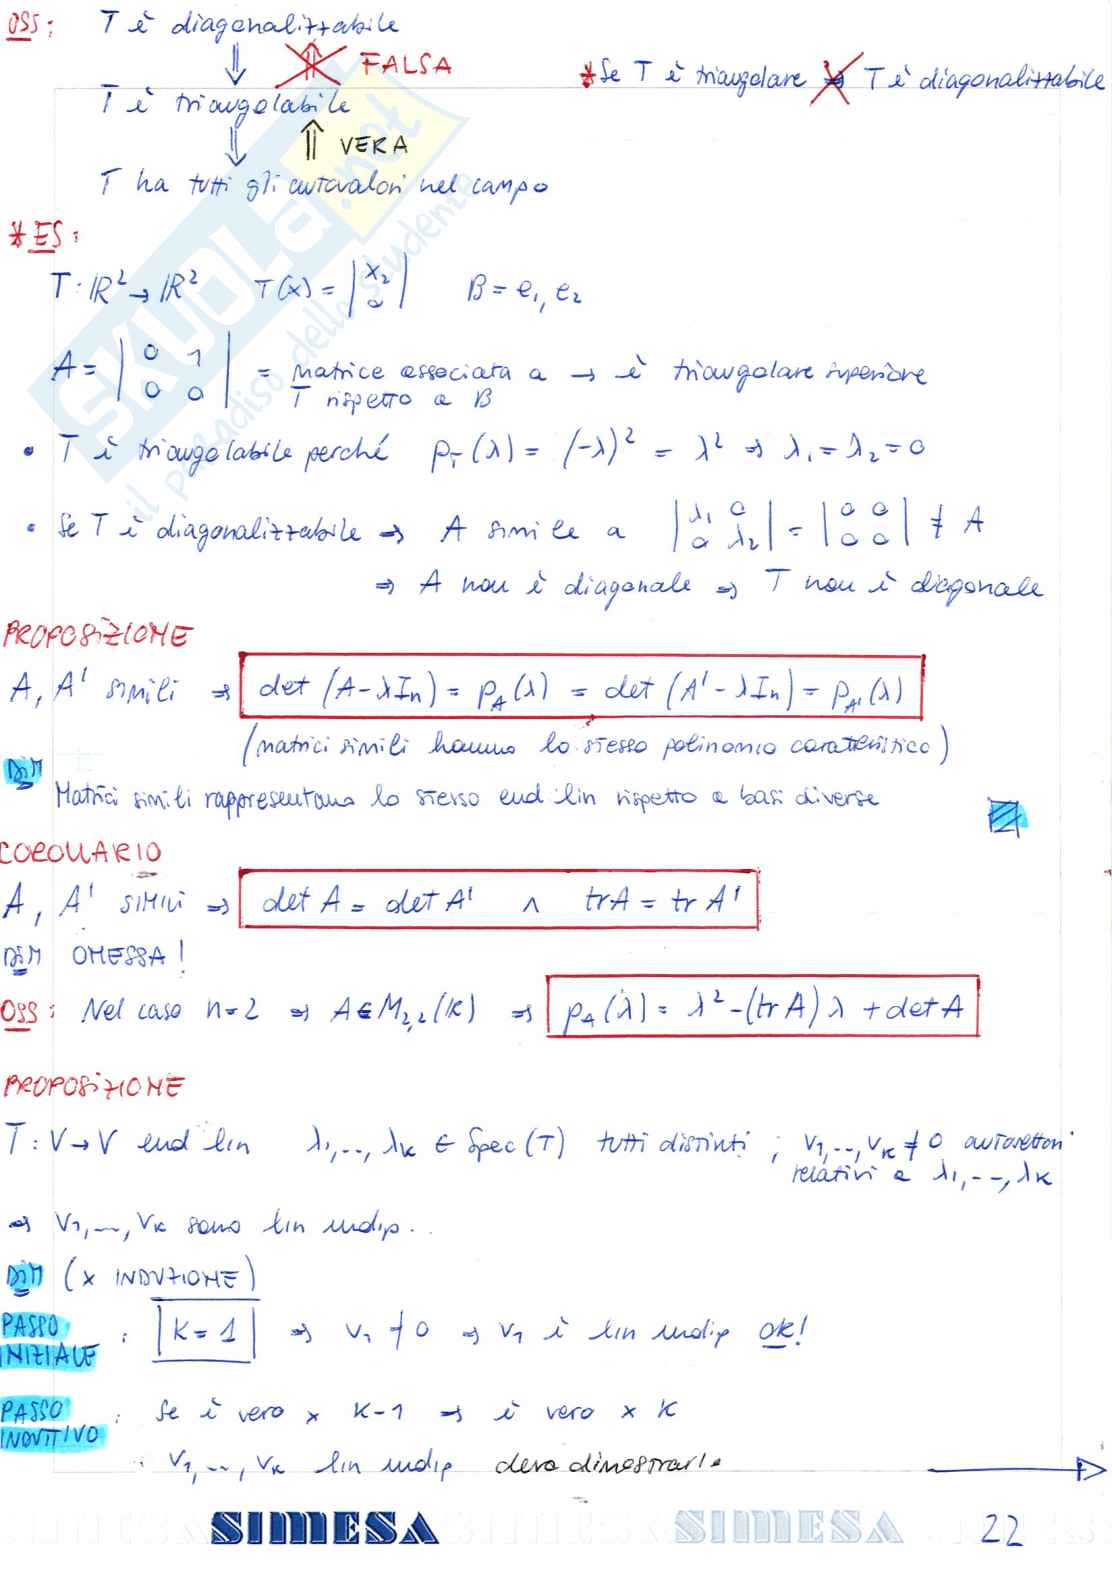 OSS: T è diagonalizzabile
⇓ ⇑ FALSA
*Se T è triangolare ⇏ T è diagonalizzabile
T è triangolabile
⇓ ⇑ VERA
T ha tutti gli autovalori nel campo
* ES:
T: ℝ² → ℝ² T(x) = |x₂ 0| B = e₁, e₂
A = |0 1 / 0 0| = matrice associata a T rispetto a B → è triangolare superiore
• T è triangolabile perché p_T(λ) = (-λ)² = λ² ⇒ λ₁ = λ₂ = 0
• Se T è diagonalizzabile ⇒ A simile a |λ₁ 0 / 0 λ₂| = |0 0 / 0 0| ≠ A
⇒ A non è diagonale ⇒ T non è diagonale
PROPOSIZIONE
A, A' simili ⇒ det (A-λIn) = p_A(λ) = det (A' - λIn) = p_A'(λ)
(matrici simili hanno lo stesso polinomio caratteristico)
DIM
Matrici simili rappresentano lo stesso end lin rispetto a basi diverse
COROLLARIO
A, A' SIMILI ⇒ det A = det A' ∧ tr A = tr A'
DIM OMESSA!
OSS: Nel caso n=2 ⇒ A∈M₂,₂(K) ⇒ p_A(λ) = λ² - (tr A) λ + det A
PROPOSIZIONE
T: V → V end lin λ₁,--, λk ∈ Spec(T) tutti distinti ; v₁,--, vk ≠ 0 autovettori
relativi a λ₁, --, λk
⇒ v₁, --, vk sono lin indip.
DIM (x INDUZIONE)
PASSO INIZIALE : K = 1 ⇒ v₁ ≠ 0 ⇒ v₁ è lin indip ok!
PASSO INDUTTIVO : Se è vero x K-1 ⇒ è vero x K
v₁, --, vk lin indip devo dimostrarlo
SIMESA SIMESA 22
SKUOLA.net
il paradiso dello studente